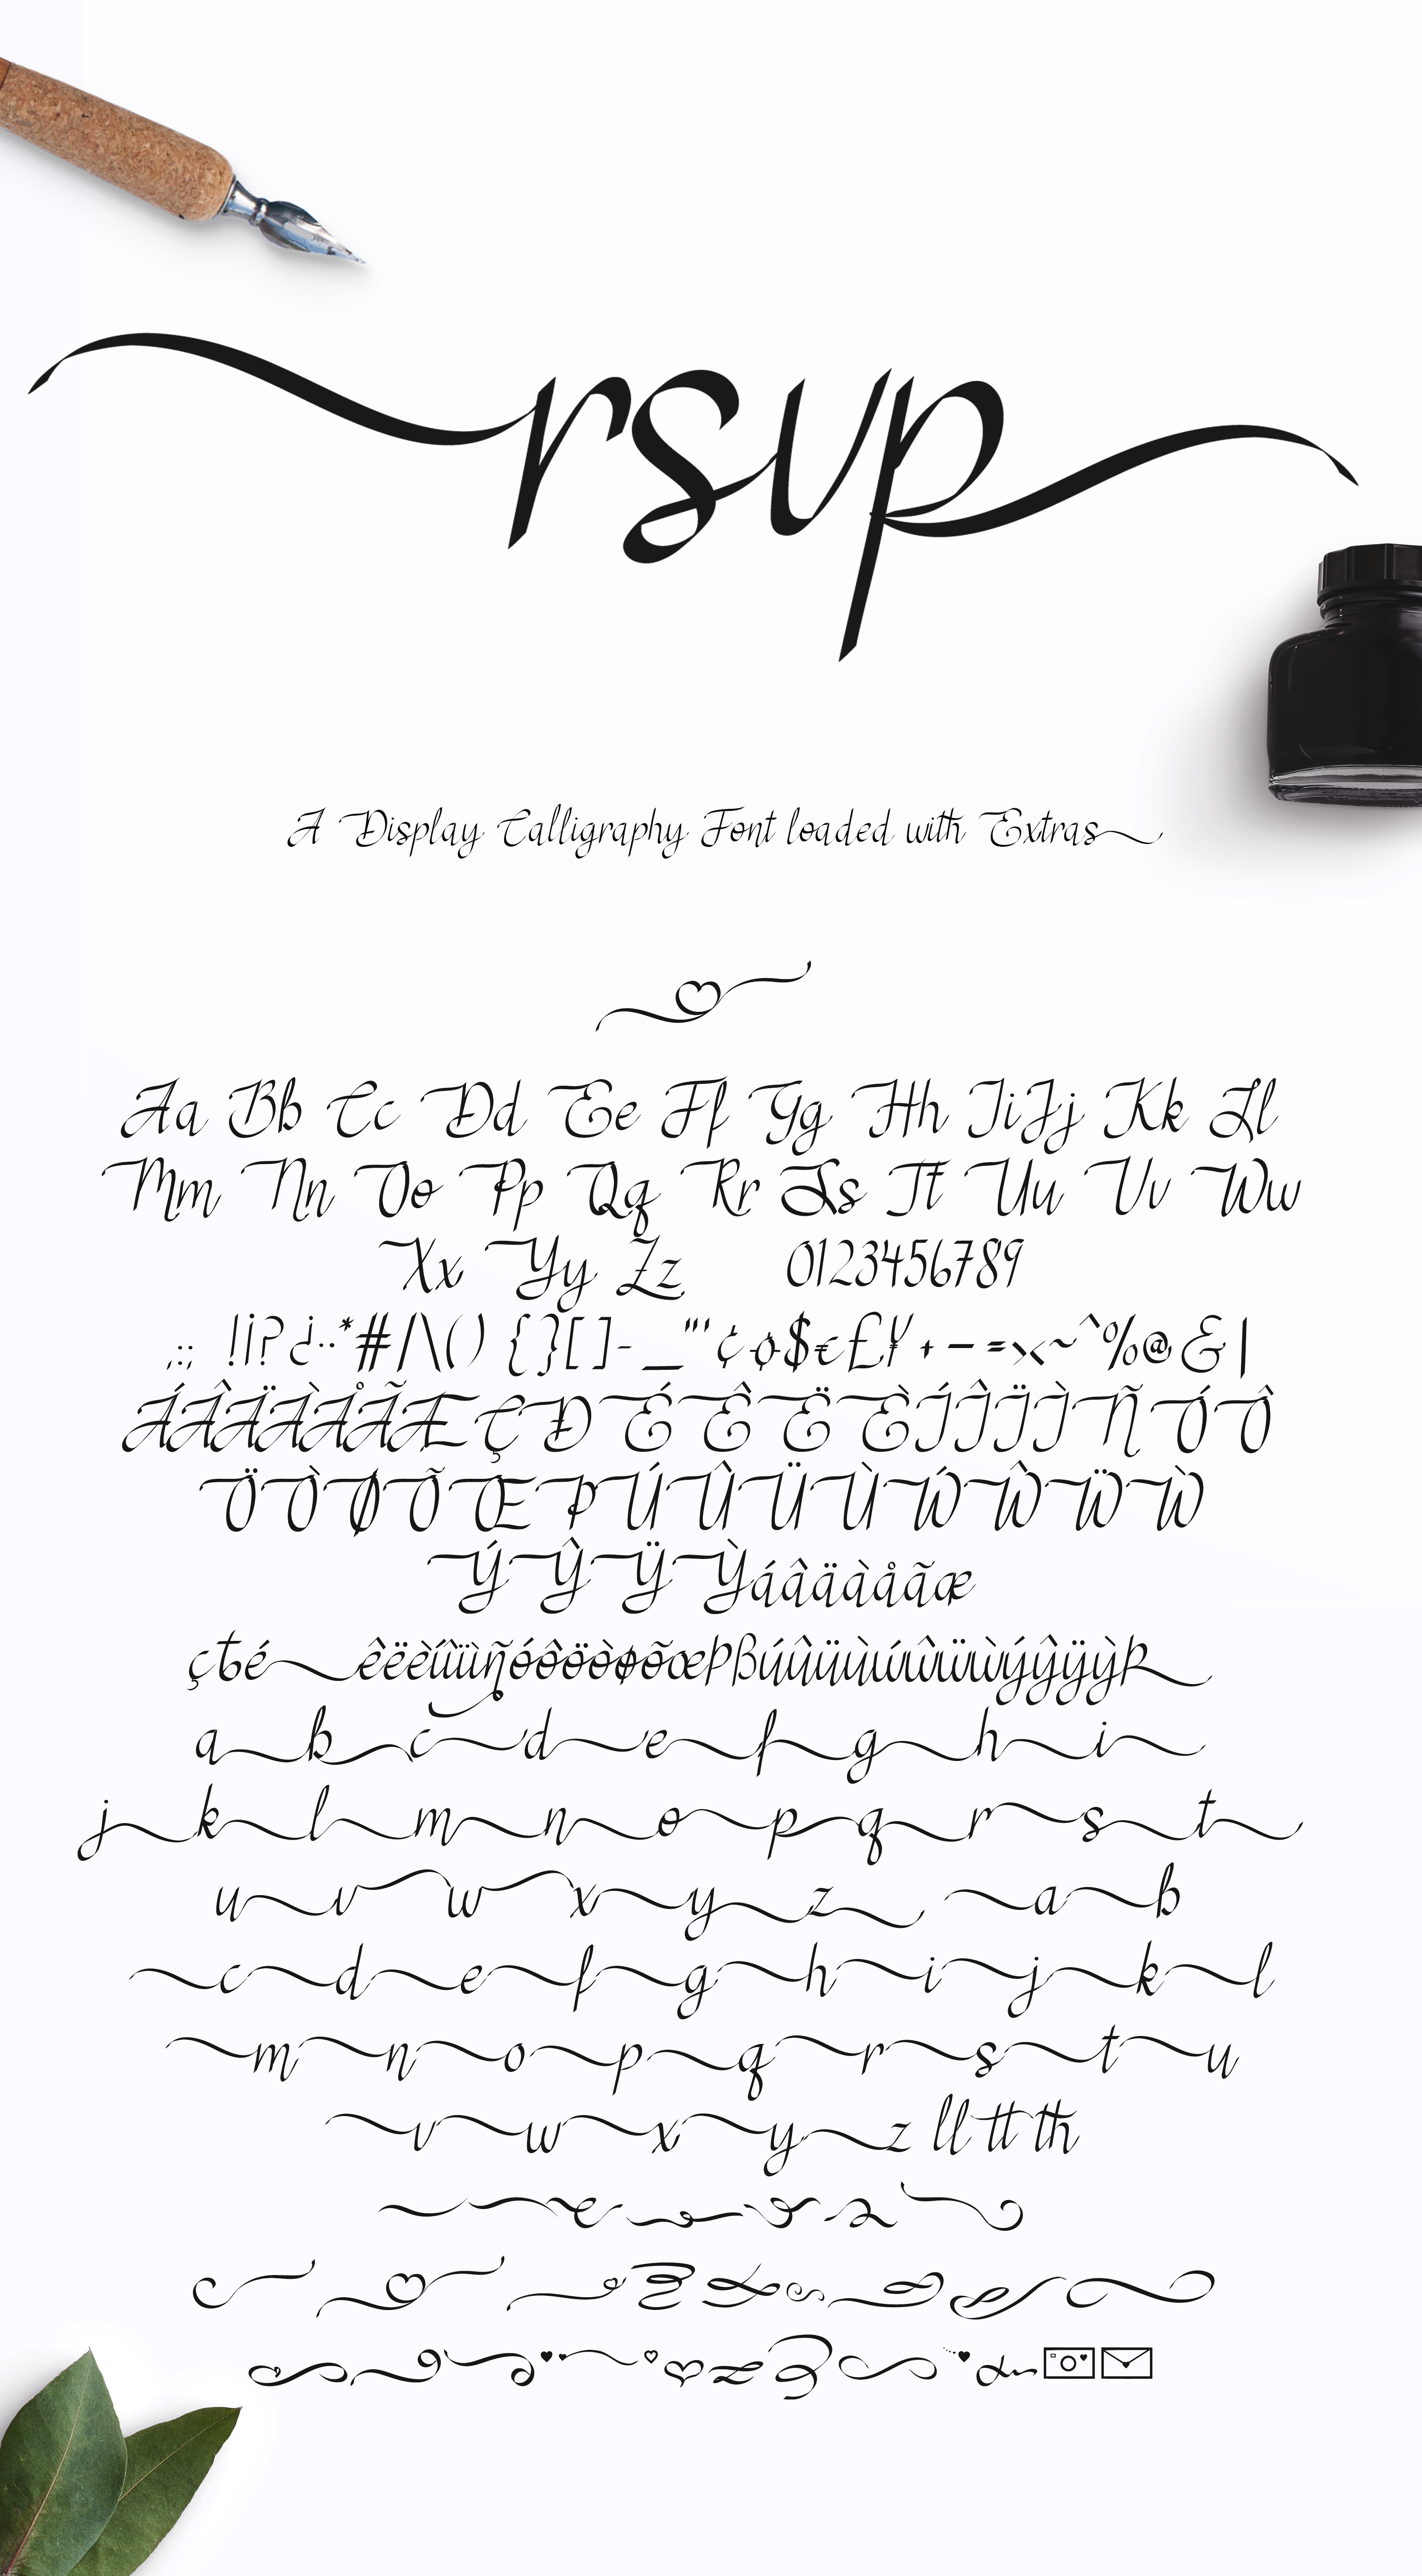 rsvp
A Display Calligraphy Font loaded with Extras
Aa Bb Cc Dd Ee Ff Gg Hh Ii Jj Kk Ll
Mm Nn Oo Pp Qq Rr Ss Tt Uu Vv Ww
Xx Yy Zz 0123456789
,.:; !¡? ¿··*#/\() {}[]-_"'‘¢¤$€£¥+−=><~^%@&|
ÁÂÄÀÅÃÆÇÐÉÊËÈÍÎÏÌÑÓÔ
ÖÒØÕŒÞÚÛÜÙẂŴẄẀ
ÝŶŸỲáâäàåãæ
çé êëèíîïìñóôöòøõœþßúûüùẃŵẅẁýŷÿỳ
a b c d e f g h i
j k l m n o p q r s t
u v w x y z a b
c d e f g h i j k l
m n o p q r s t u
v w x y z ll tt th